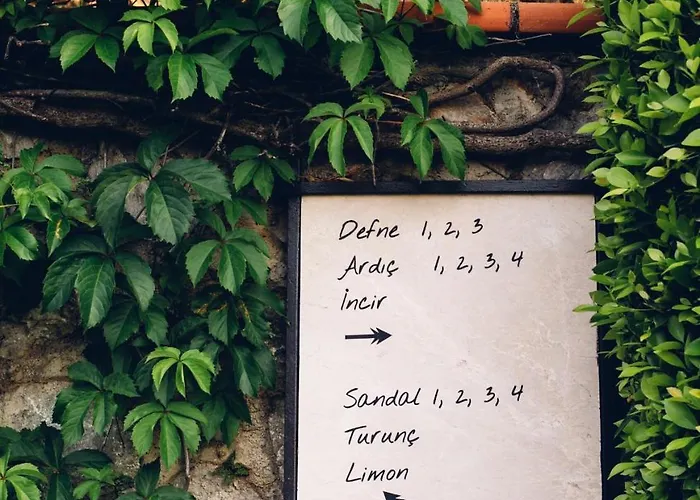 Defne 1, 2, 3
Ardıç 1, 2, 3, 4
İncir
Sandal 1, 2, 3, 4
Turunç
Limon